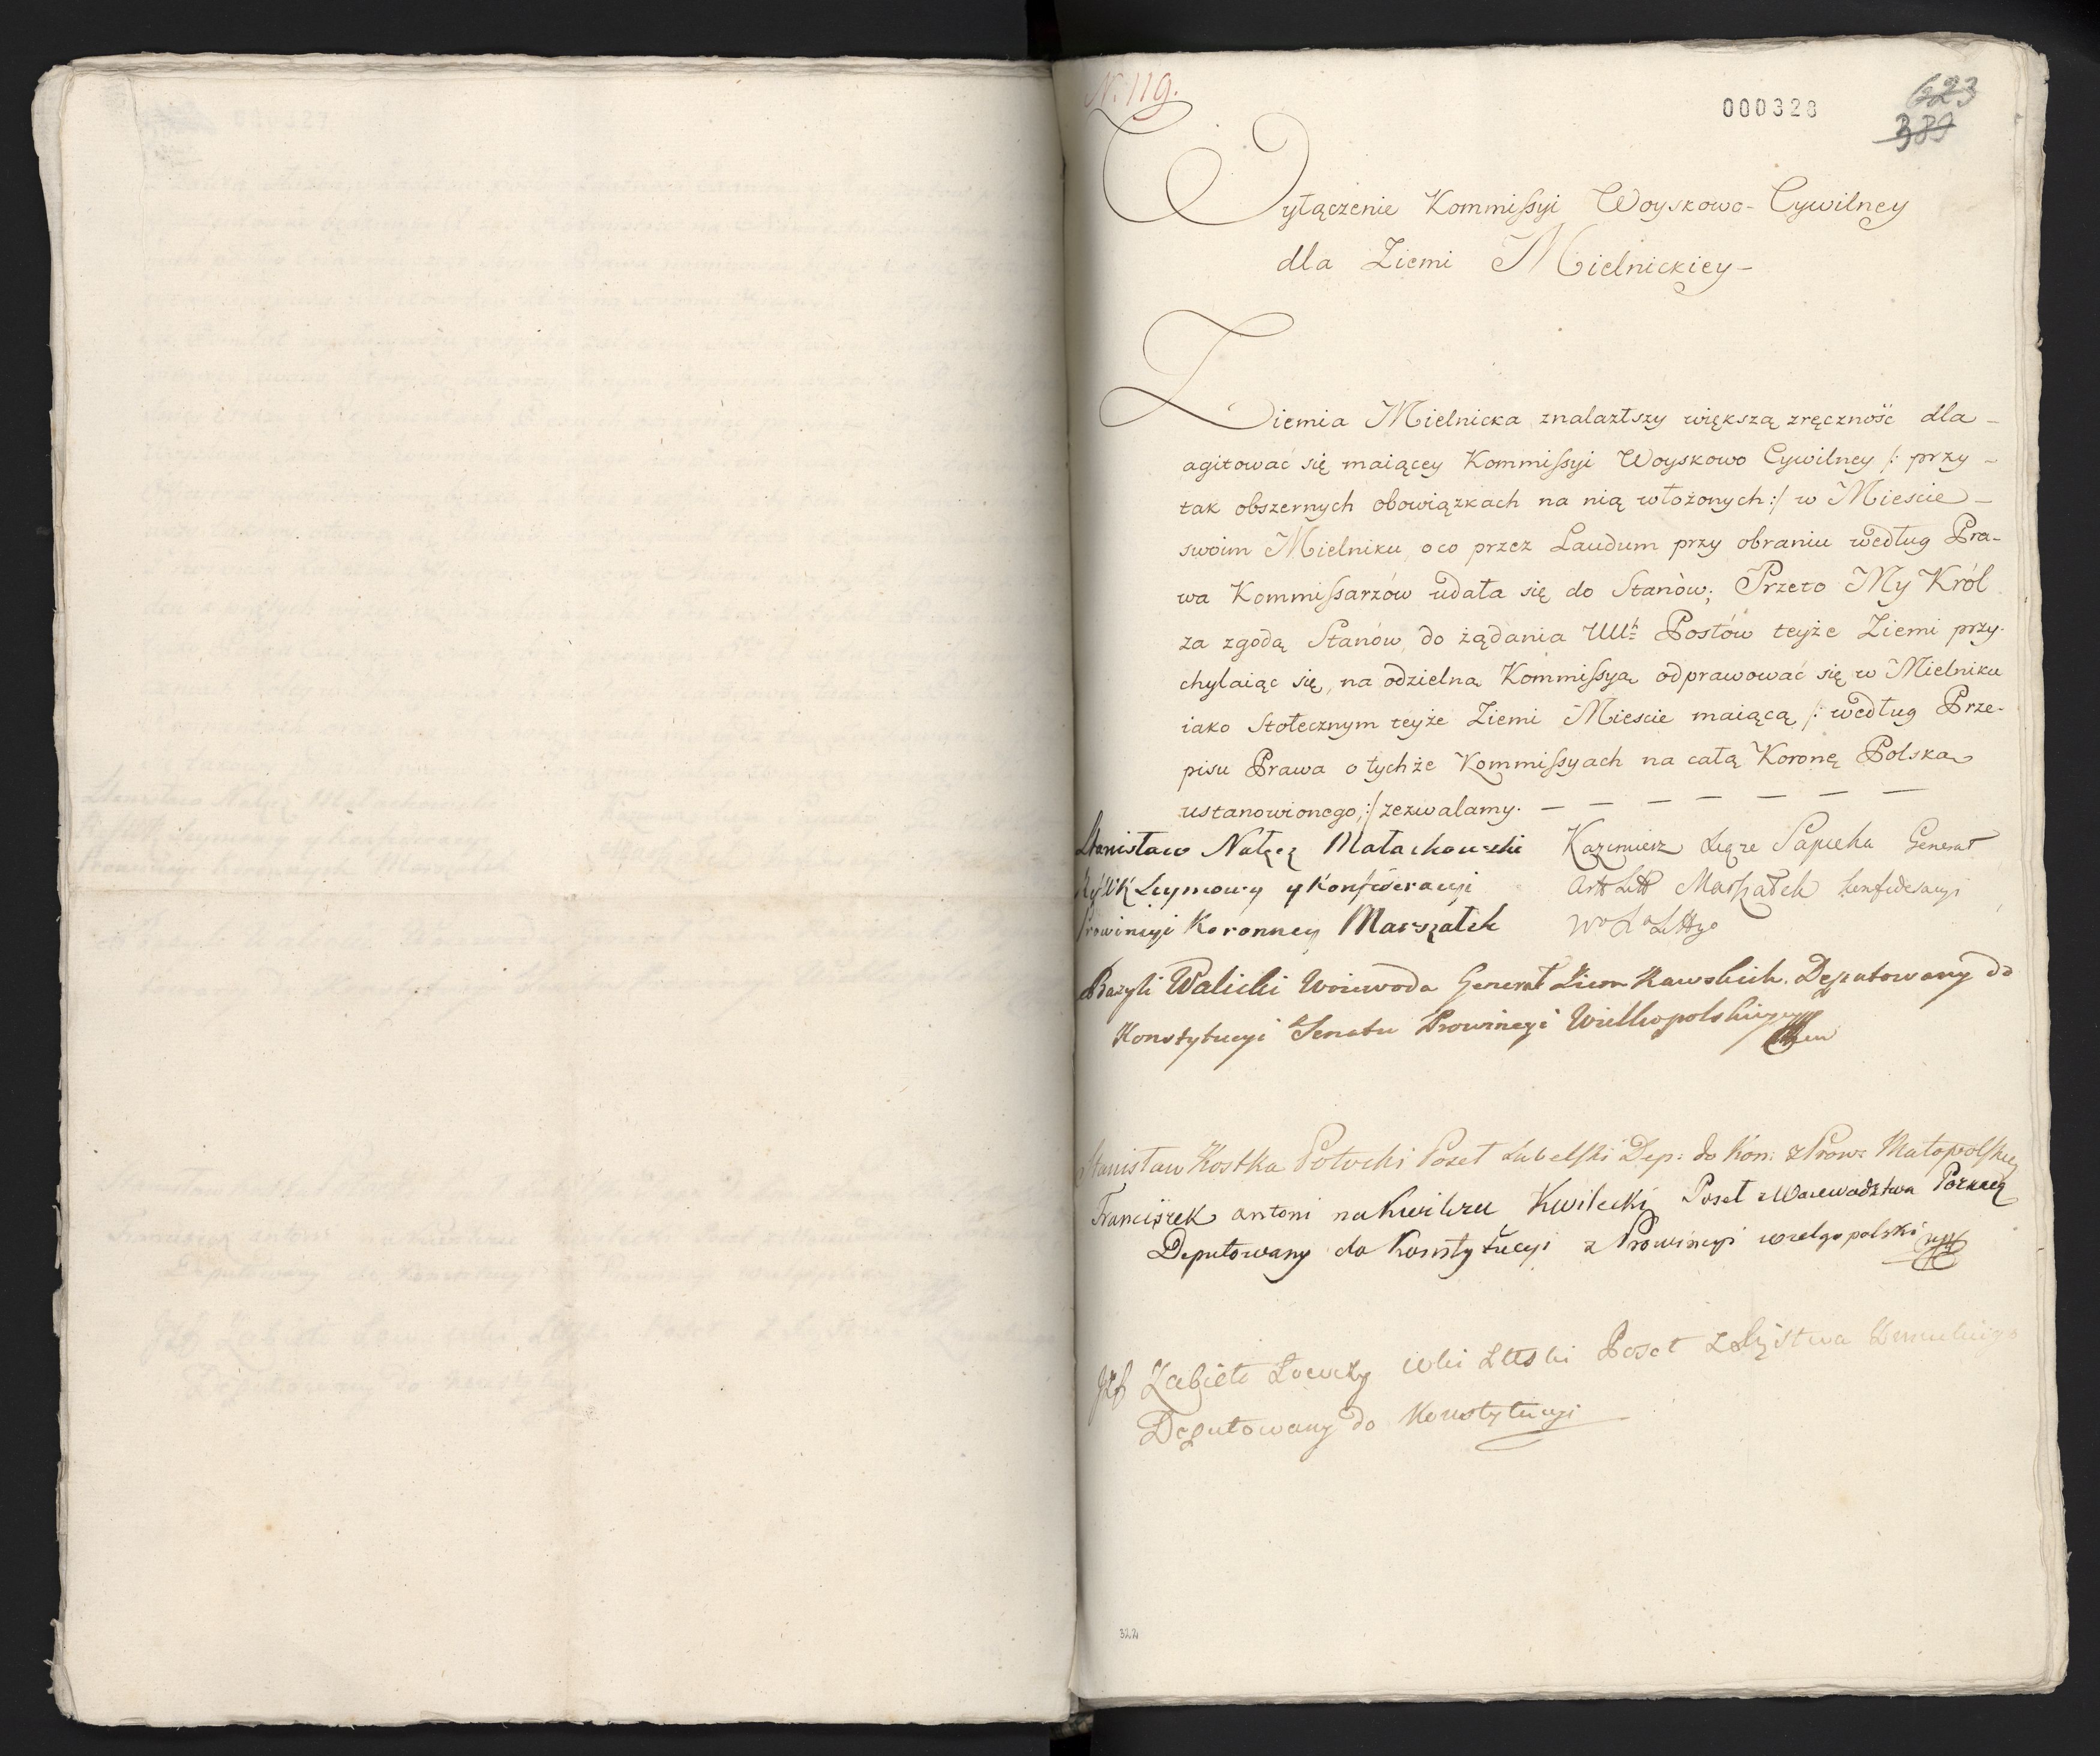 N. 119.
000328
623
389
Wyłączenie Kommissyi Woyskowo-Cywilney
dla Ziemi Mielnickiey-
Ziemia Mielnicka znalazłszy większą zręczność dla
agitować się maiącey Kommissyi Woyskowo Cywilney /: przy
tak obszernych obowiązkach na nią włożonych :/ w Miescie
swoim Mielniku, oco przez Laudum przy obraniu według Pra-
wa Kommissarzów udała się do Stanów; Przeto My Król
za zgodą Stanów, do żądania UUch Posłów teyże Ziemi przy-
chylaiąc się, na odzielną Kommissyą odprawować się w Mielniku
iako Stołecznym teyże Ziemi Miescie maiącą /: według Prze-
pisu Prawa o tychże Kommissyach na całą Koronę Polską
ustanowionego, :/ zezwalamy. — — — — — — —
Stanisław Nałęcz Małachowski
R W K Seymowy y Konfederacyi
Prowincyi Koronney Marszałek
Kazimierz Xiąże Sapieha Generał
Artt Litt Marszałek Konfederacyi
W° X° Litt°
Bazyli Walicki Woiewoda Generał Ziem Rawskich. Deputowany do
Konstytucyi z Senatu Prowincyi Wielkopolskiey
Stanisław Kostka Potocki Poseł Lubelski Dep: do Kon: z Prow: Małopolskiey
Franciszek antoni na Kwilczu Kwilecki Poseł z Woiewodztwa Pozna
Deputowany do Konstytucyi z Prowincyi wielgopolski
Jzf Zabiełło Łowczy Wki Lttski Poseł z Xięstwa Zmudzkiego
Deputowany do Konstytucyi
322